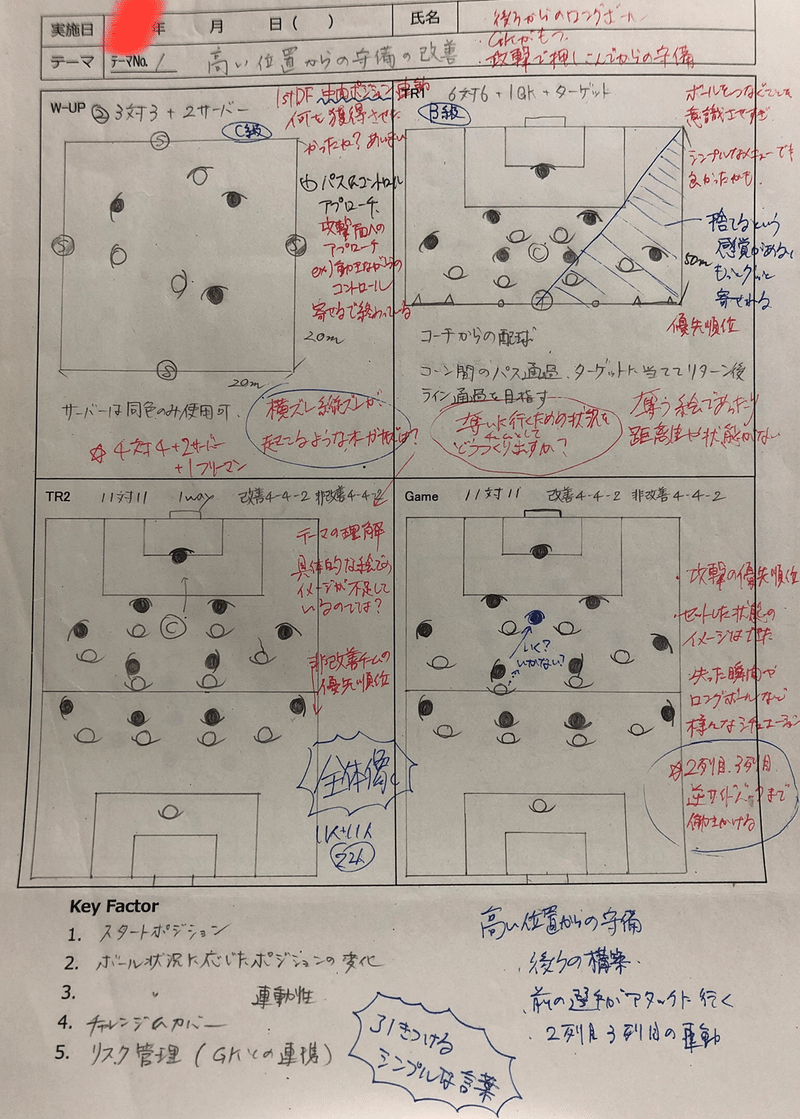 実施日 年 月 日( ) 氏名
テーマ テーマNo. 1 高い位置からの守備の改善
後ろからのロングボール
GKがもつ
・攻撃で押しこんでからの守備
W-UP ② 3対3+2サーバー
C級
S
S
S
S
20m
20m
サーバーは同色のみ使用可.
☆ 4対4+2サーバー
+1フリーマン
横ズレ縦ズレが
1stDF 中間ポジション 連動
何を獲得させた
かったね?
パス&コントロール
アプローチ.
攻撃面への
アプローチ
ex)動きながらの
コントロール
寄せるで終わっている
TR1 6対6+1GK+ターゲット
B級
C
50m
コーチからの配球
コーン間のパス通過、ターゲットに当ててリターン後
ライン通過を目指す
奪いに行くための状況を
チームとして
どうつくりますか?
ボールをつなぐことを
意識させすぎ
シンプルなメニューでも
良かったかも.
捨てるという
感覚がある
もっとグッと
寄せれる
優先順位
奪う絵であったり
距離感や状態がない
TR2 11対11 1way 改善4-4-2 非改善4-4-2
C
テーマの理解
具体的な絵での
イメージが不足して
いるのでは?
非改善チームの
優先順位
全体像
11人+11人
22人
Game 11対11 改善4-4-2 非改善4-4-2
いく?
いかない?
・攻撃の優先順位
・セットした状態の
イメージはできた
失った瞬間や
ロングボールなど
様々なシチュエーション
☆2列目、3列目
逆サイドバックまで
働きかける
Key Factor
1. スタートポジション
2. ボール状況に応じたポジションの変化
3. 〃 連動性
4. チャレンジ&カバー
5. リスク管理(GKとの連携)
高い位置からの守備
・後ろの構築
・前の選手がアタックに行く
・2列目3列目の連動
引きつける
シンプルな言葉